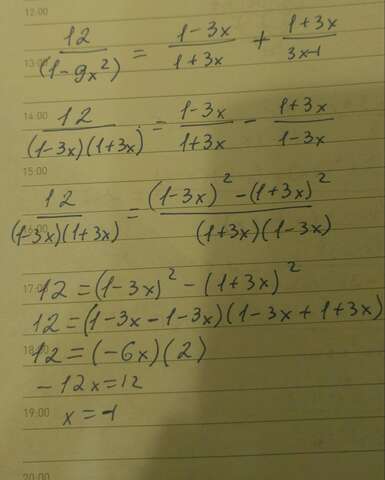 12:00
12/(1-9x²) = (1-3x)/(1+3x) + (1+3x)/(3x-1)
13:00
14:00
12/((1-3x)(1+3x)) = (1-3x)/(1+3x) - (1+3x)/(1-3x)
15:00
12/((1-3x)(1+3x)) = ((1-3x)² - (1+3x)²)/((1+3x)(1-3x))
16:00
17:00
12 = (1-3x)² - (1+3x)²
12 = (1-3x-1-3x)(1-3x+1+3x)
18:00
12 = (-6x)(2)
-12x = 12
19:00
x = -1
20:00